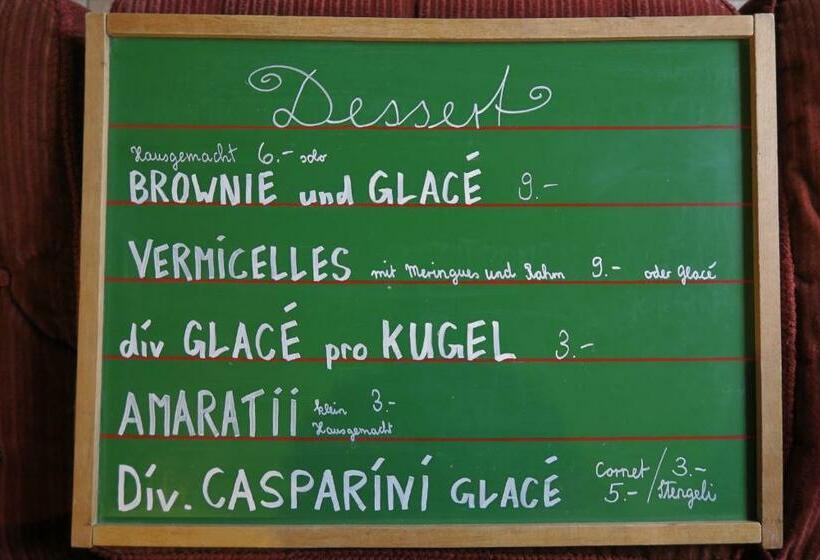 Dessert
Hausgemacht 6.- solo
BROWNIE und GLACÉ 9.-
VERMICELLES mit Meringues und Rahm 9.- oder Glacé
div GLACÉ pro KUGEL 3.-
AMARATii klein 3.-
Hausgemacht
Div. CASPARINI GLACÉ Cornet 5.- / 3.- Stengeli